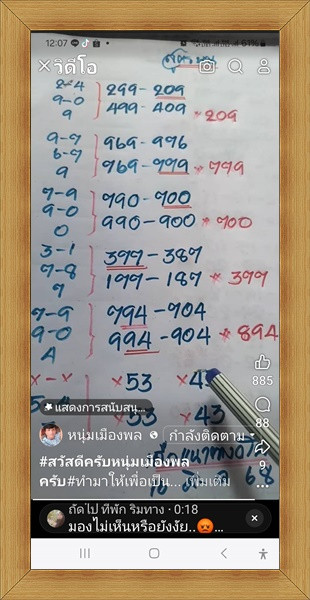 12:07
61%
วิดีโอ
2-4
9-0
9
299-209
499-409
*209
9-7
6-7
9
969-996
969-999
*999
7-9
9-0
0
790-700
990-900 * 900
3-1
7-8
7
397-387
197-187 * 397
7-9
9-0
A
794-704
994-904 * 894
x-x
x53
x43
x53
x43
แสดงการสนับสนุ...
885
88
หนุ่มเมืองพล
กำลังติดตาม
9
#สวัสดีครับหนุ่มเมืองพล
ครับ#ทำมาให้เพื่อเป็น... เพิ่มเติม
16
68
ถัดไป ทีพัก ริมทาง · 0:18
มองไม่เห็นหรือยังงัย..😡...